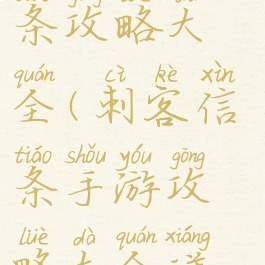 条攻略大
quán cì kè xìn
全(刺客信
tiáo shǒu yóu gōng
条手游攻
lüè dà quán xiáng